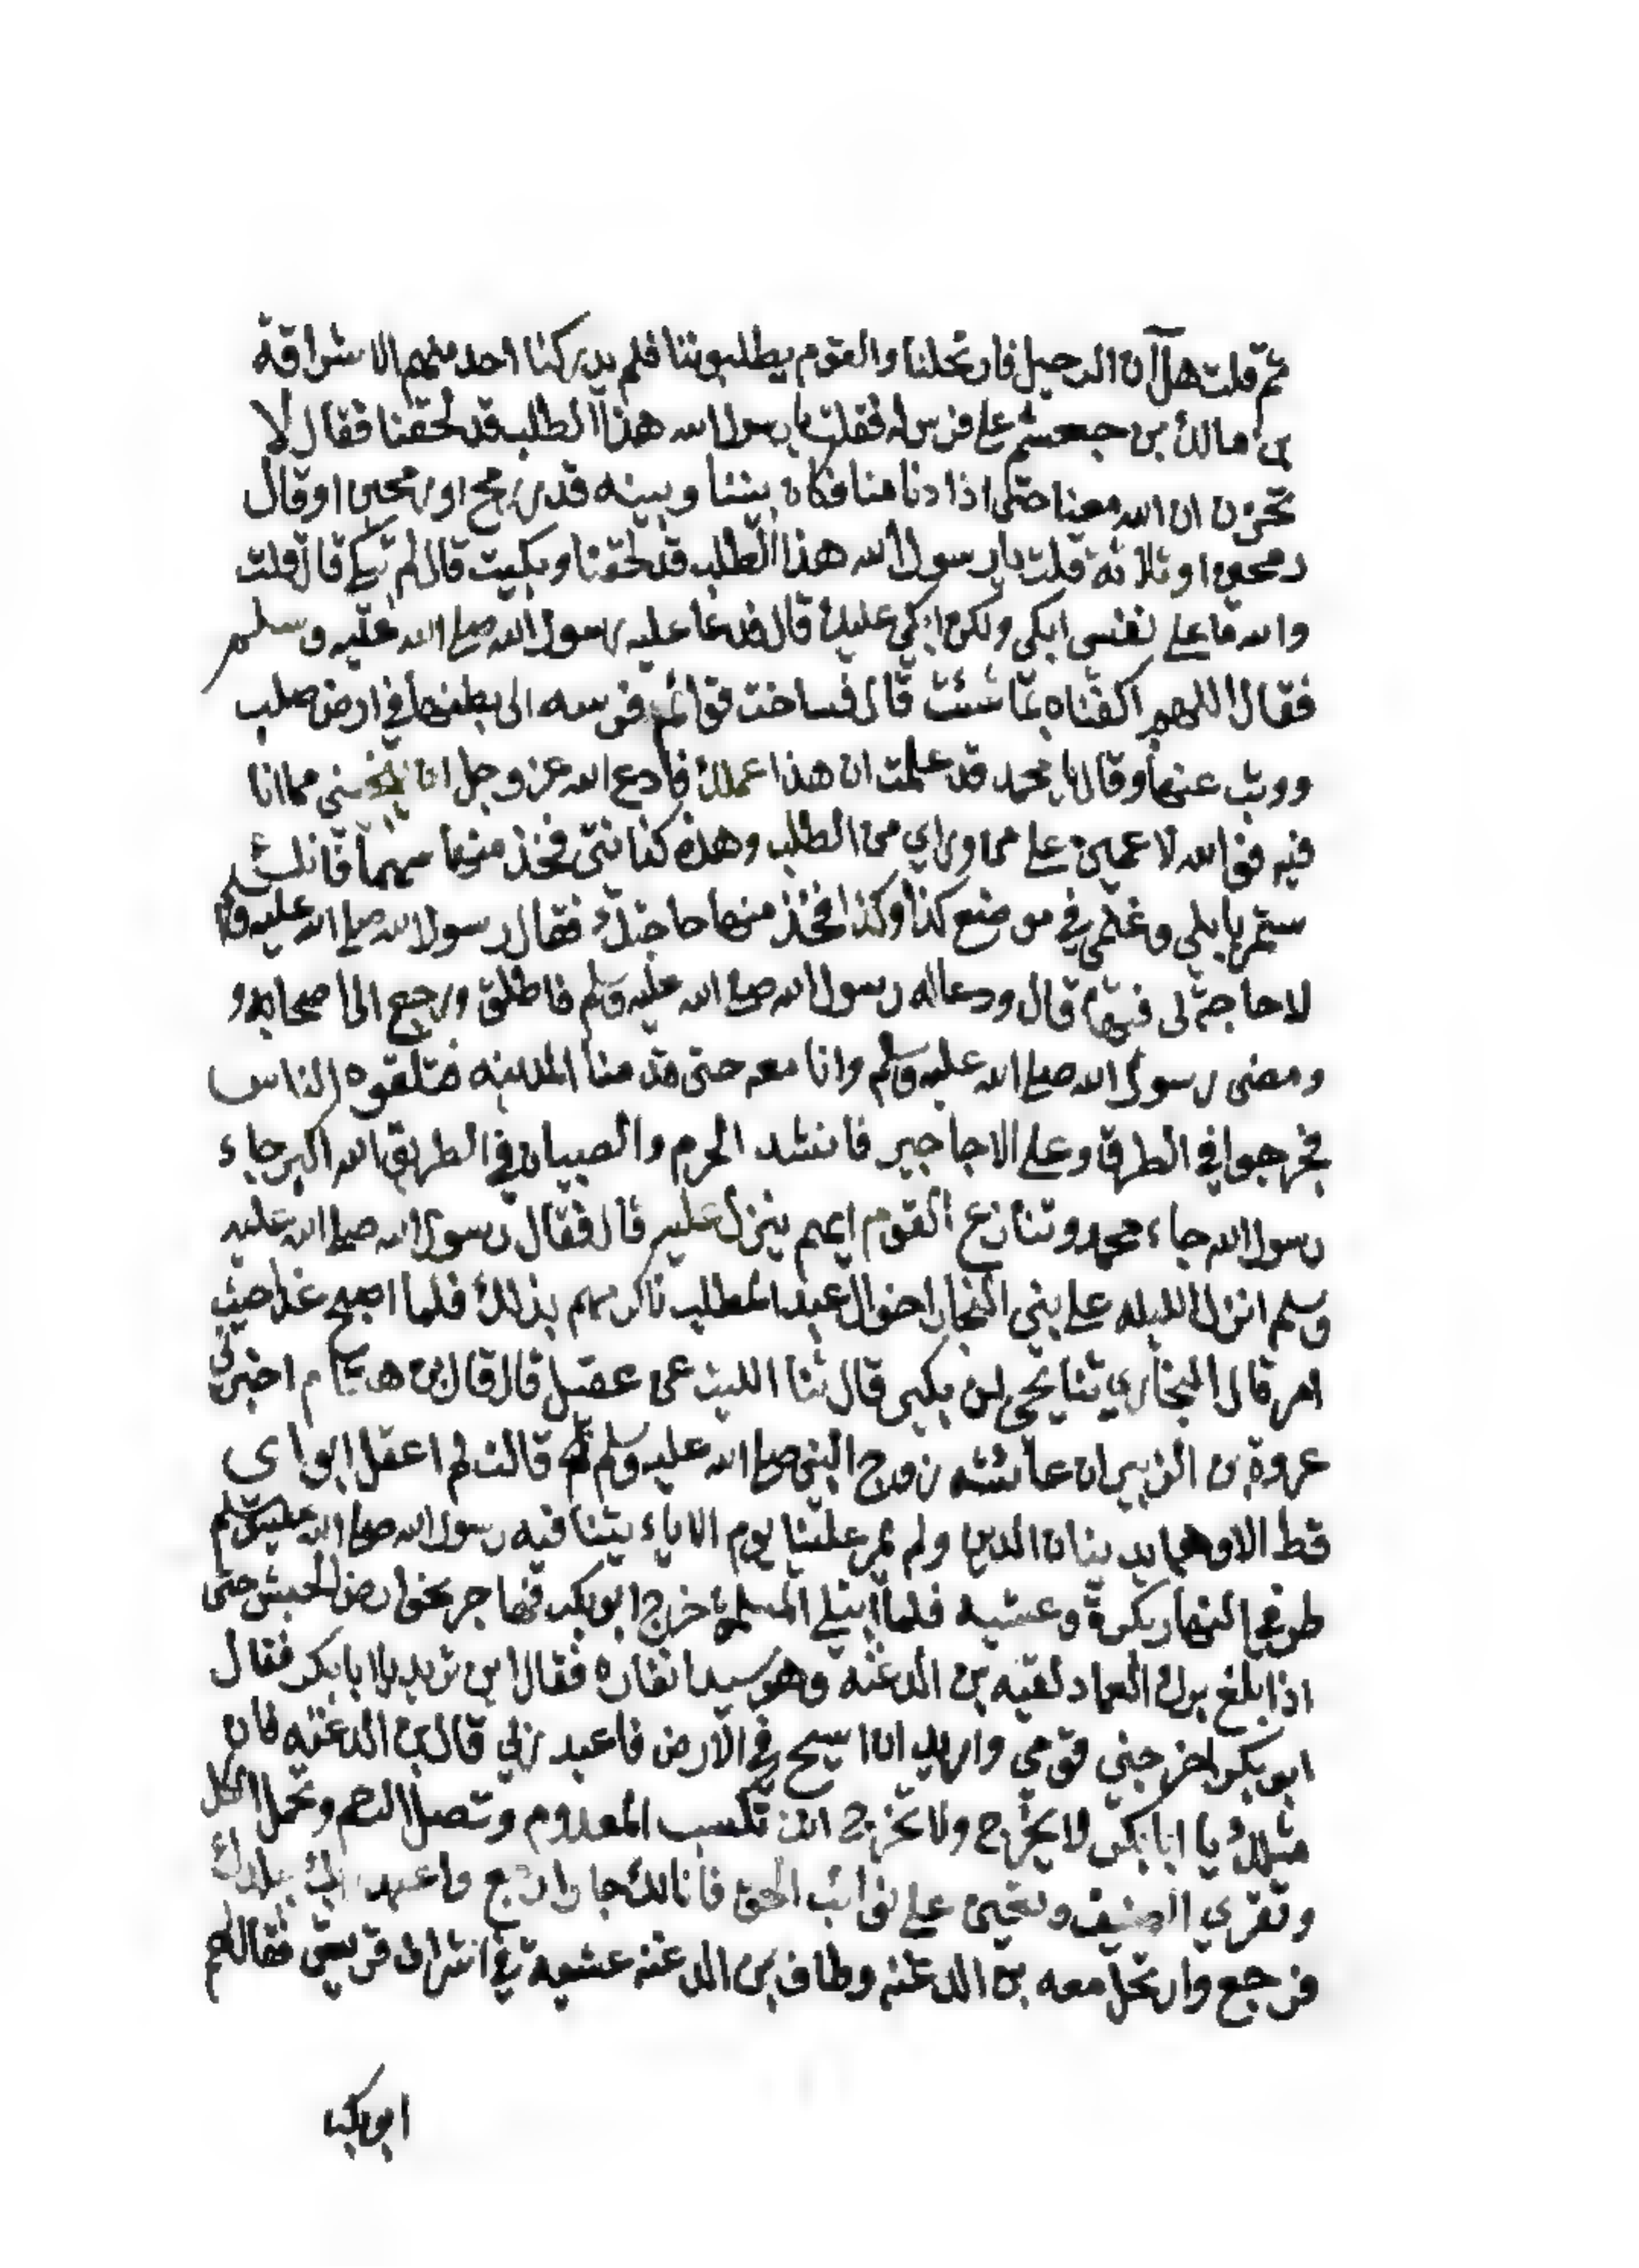 ثم قلت هل آن الرحيل فارتحلنا والقوم يطلبوننا فلم يدركنا احد منهم الا سراقة
بن مالك بن جعشم على فرس له فقلت يا رسول الله هذا الطلب قد لحقنا فقال لا
تحزن ان الله معنا حتى اذا دنا منا فكان بيننا وبينه قدر رمح او رمحين او قال
رمحين او ثلاثة قلت يا رسول الله هذا الطلب قد لحقنا وبكيت قال لم تبكي قال قلت
والله ما على نفسي ابكي ولكن ابكي عليك قال فدعا عليه رسول الله صلى الله عليه وسلم
فقال اللهم اكفناه بما شئت قال فساخت قوائم فرسه الى بطنها في ارض صلب
ووثب عنها وقال يا محمد قد علمت ان هذا عملك فادع الله عز وجل ان ينجيني مما انا
فيه فوالله لاعمين على من وراي من الطلب وهذه كنانتي فخذ منها سهما فانك
ستمر بابلي وغنمي في موضع كذا وكذا فخذ منها حاجتك فقال رسول الله صلى الله عليه وسلم
لا حاجة لي فيها قال ودعا له رسول الله صلى الله عليه وسلم فاطلق ورجع الى اصحابه و
ومضى رسول الله صلى الله عليه وسلم وانا معه حتى قدمنا المدينه فتلقوه الناس
فخرجوا في الطرق وعلى الاجاجير فانشد الحرم والصبيان في الطريق الله اكبر جاء
رسول الله جاء محمد وتنازع القوم ايهم ينزل عليه قال فقال رسول الله صلى الله عليه
وسلم انزل الليله على بني النجار اخوال عبد المطلب لاكرمهم بذلك فلما اصبح غدا حيث
امر قال البخاري ثنا يحيى بن بكير قال ثنا الليث عن عقيل قال قال بن هشام اخبرني
عروة بن الزبير ان عائشه زوج النبي صلى الله عليه وسلم قالت لم اعقل ابواي
قط الا وهما يدينان الدين ولم يمر علينا يوم الا ياءتينا فيه رسول الله صلى الله عليه وسلم
طرفي النهار بكرة وعشيه فلما ابتلي المسلمون خرج ابو بكر مهاجر نحو ارض الحبش حتى
اذا بلغ برك الغماد لقيه بن الدغنه وهو سيد القاره فقال اين تريد يا ابا بكر فقال
ابو بكر اخرجني قومي واريد ان اسيح في الارض فاعبد ربي قال بن الدغنه فان
مثلك يا ابا بكر لا يخرج ولا يخرج انك تكسب المعدوم وتصل الرحم وتحمل الكل
وتقري الضيف وتعين على نوائب الحق فانا لك جار ارجع واعبد ربك ببلدك
فرجع وارتحل معه بن الدغنه وطاف بن الدغنه عشية في اشراف قريش فقال لهم
ابو بكر